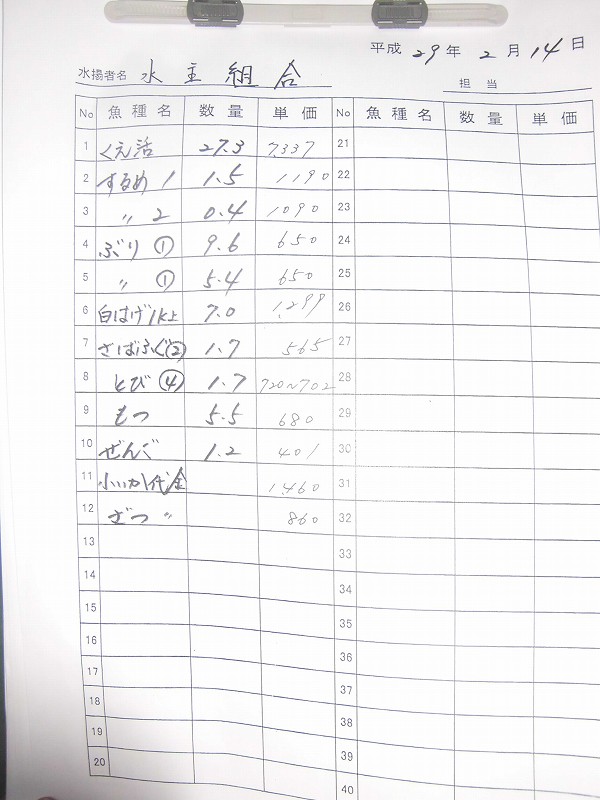 平成 29 年 2 月 14 日
水揚者名 水主組合
担当
No 魚種名 数量 単価 No 魚種名 数量 単価
1 くえ活 27.3 7,337 21
2 するめ 1 1.5 1190 22
3 〃 2 0.4 1090 23
4 ぶり ① 9.6 650 24
5 〃 ① 5.4 650 25
6 白はげ1K上 7.0 1,299 26
7 さばふぐ② 1.7 565 27
8 とび ④ 1.7 720~702 28
9 もつ 5.5 680 29
10 ぜんご 1.2 401 30
11 小いか代金 1,460 31
12 ざつ 〃 860 32
13 33
14 34
15 35
16 36
17 37
18 38
19 39
20 40